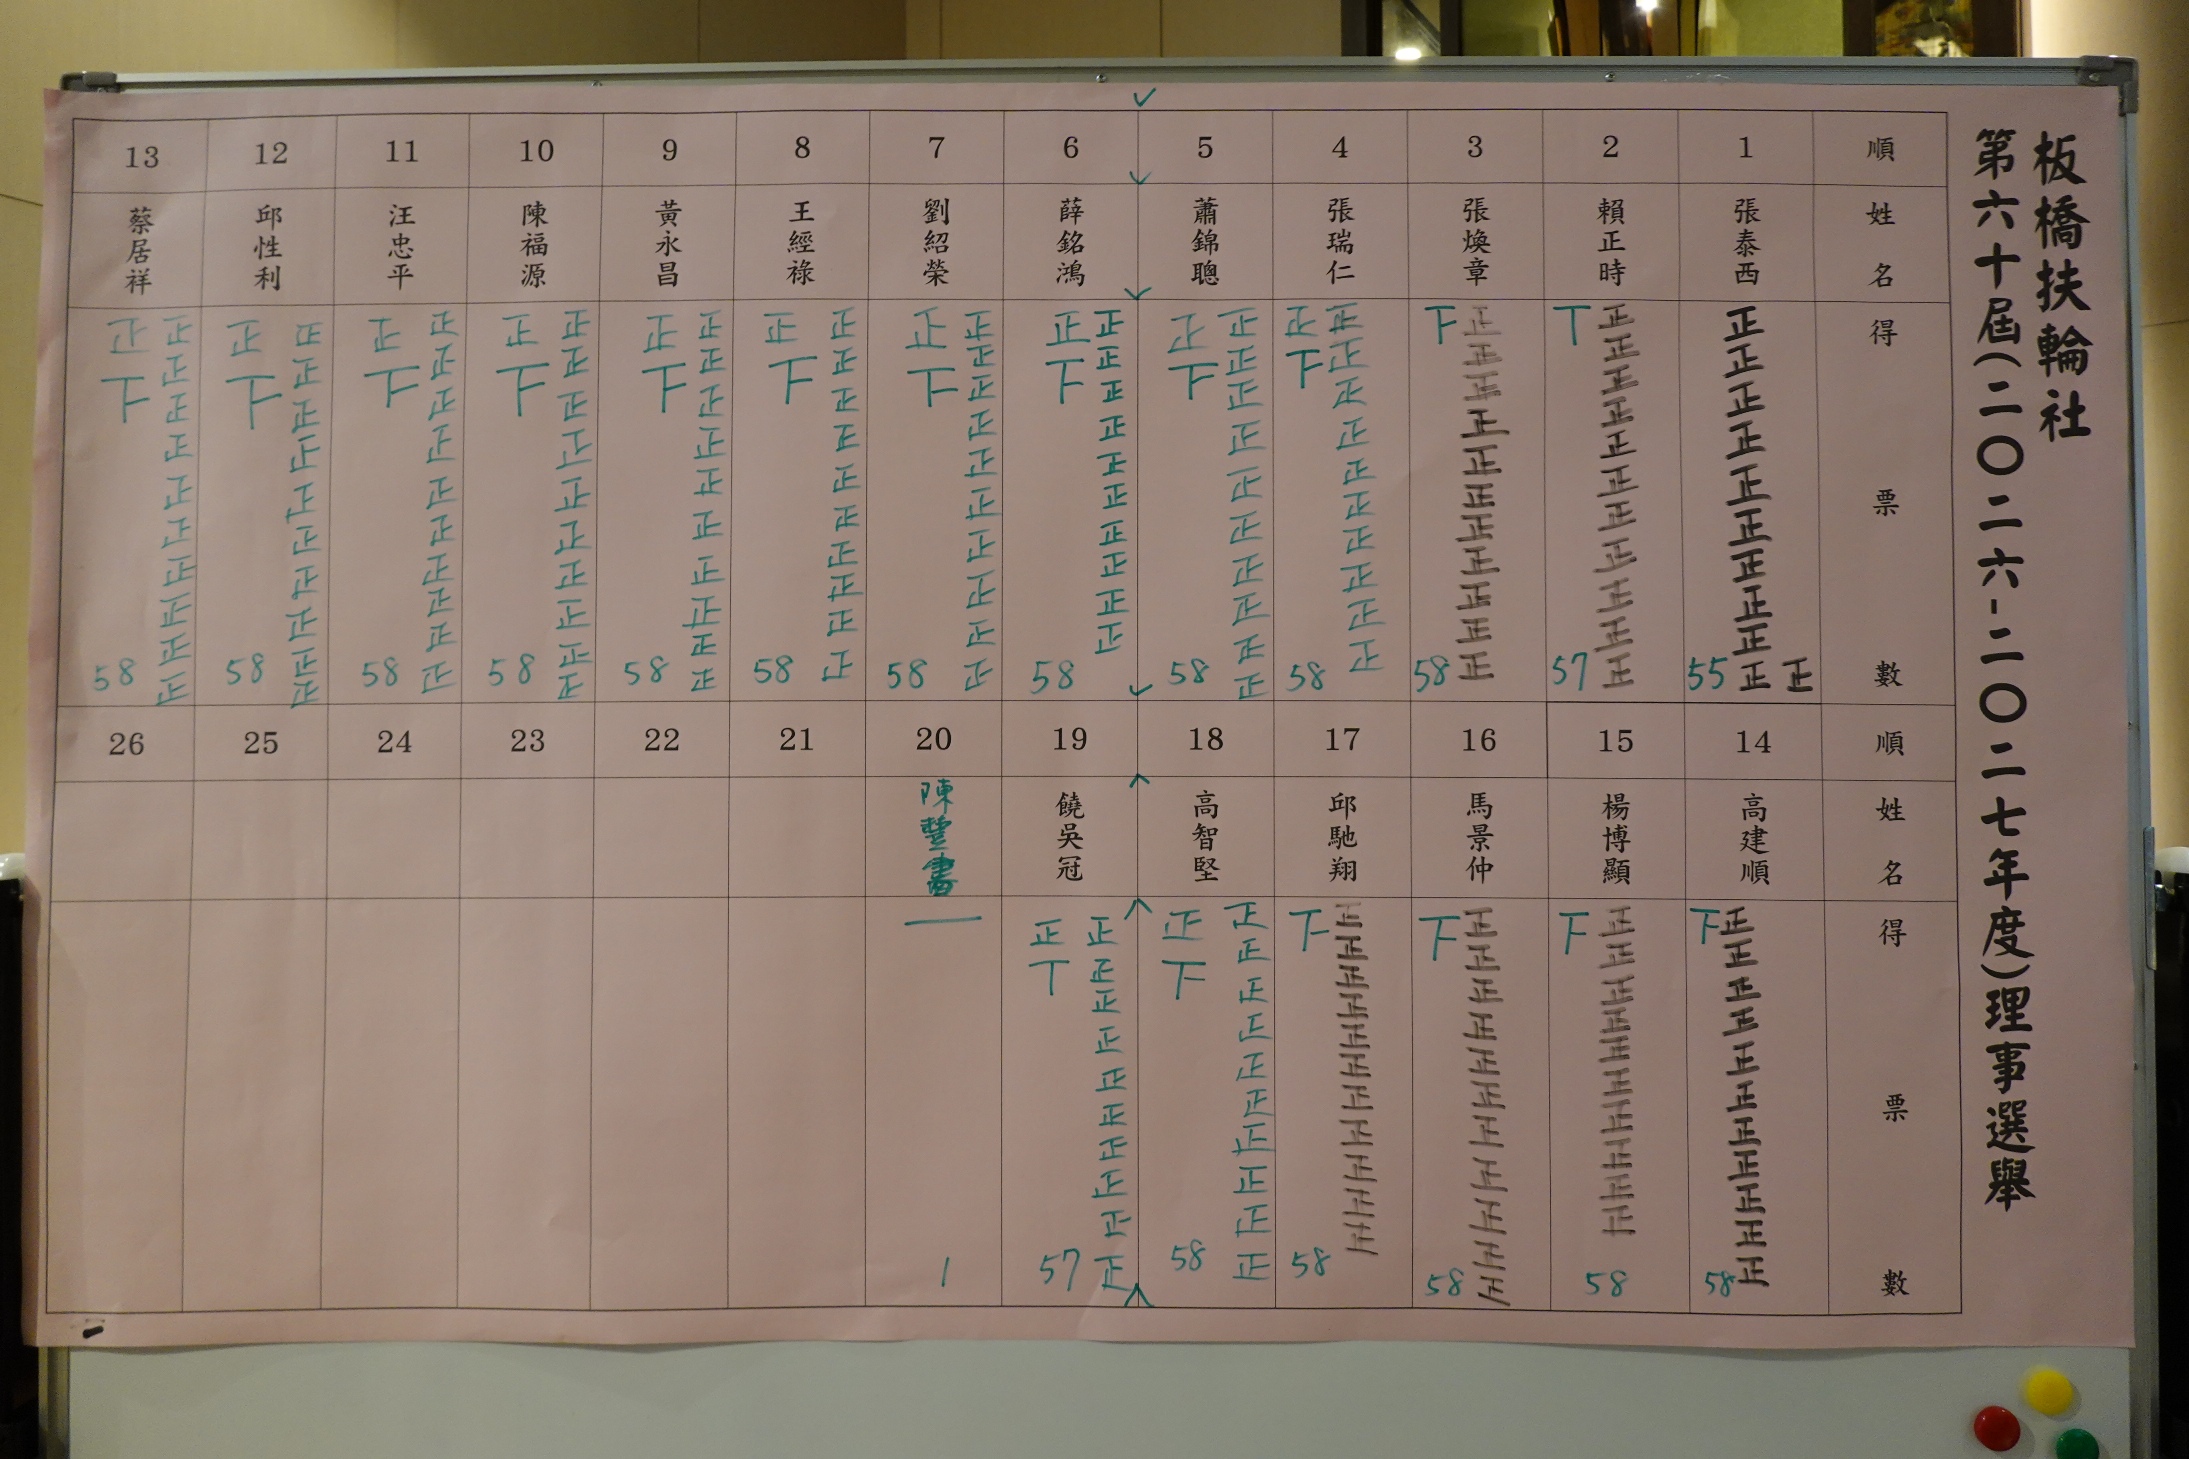 板橋扶輪社
第六十屆(二〇二六-二〇二七年度)理事選舉
順 1 2 3 4 5 6 7 8 9 10 11 12 13
姓名 張泰西 賴正時 張煥章 張瑞仁 蕭錦聰 薛銘鴻 劉紹榮 王經祿 黃永昌 陳福源 汪忠平 邱性利 蔡居祥
得票數 55 57 58 58 58 58 58 58 58 58 58 58 58
順 14 15 16 17 18 19 20 21 22 23 24 25 26
姓名 高建順 楊博顯 馬景仲 邱馳翔 高智堅 饒吳冠 陳豐書
得票數 58 58 58 58 58 57 1